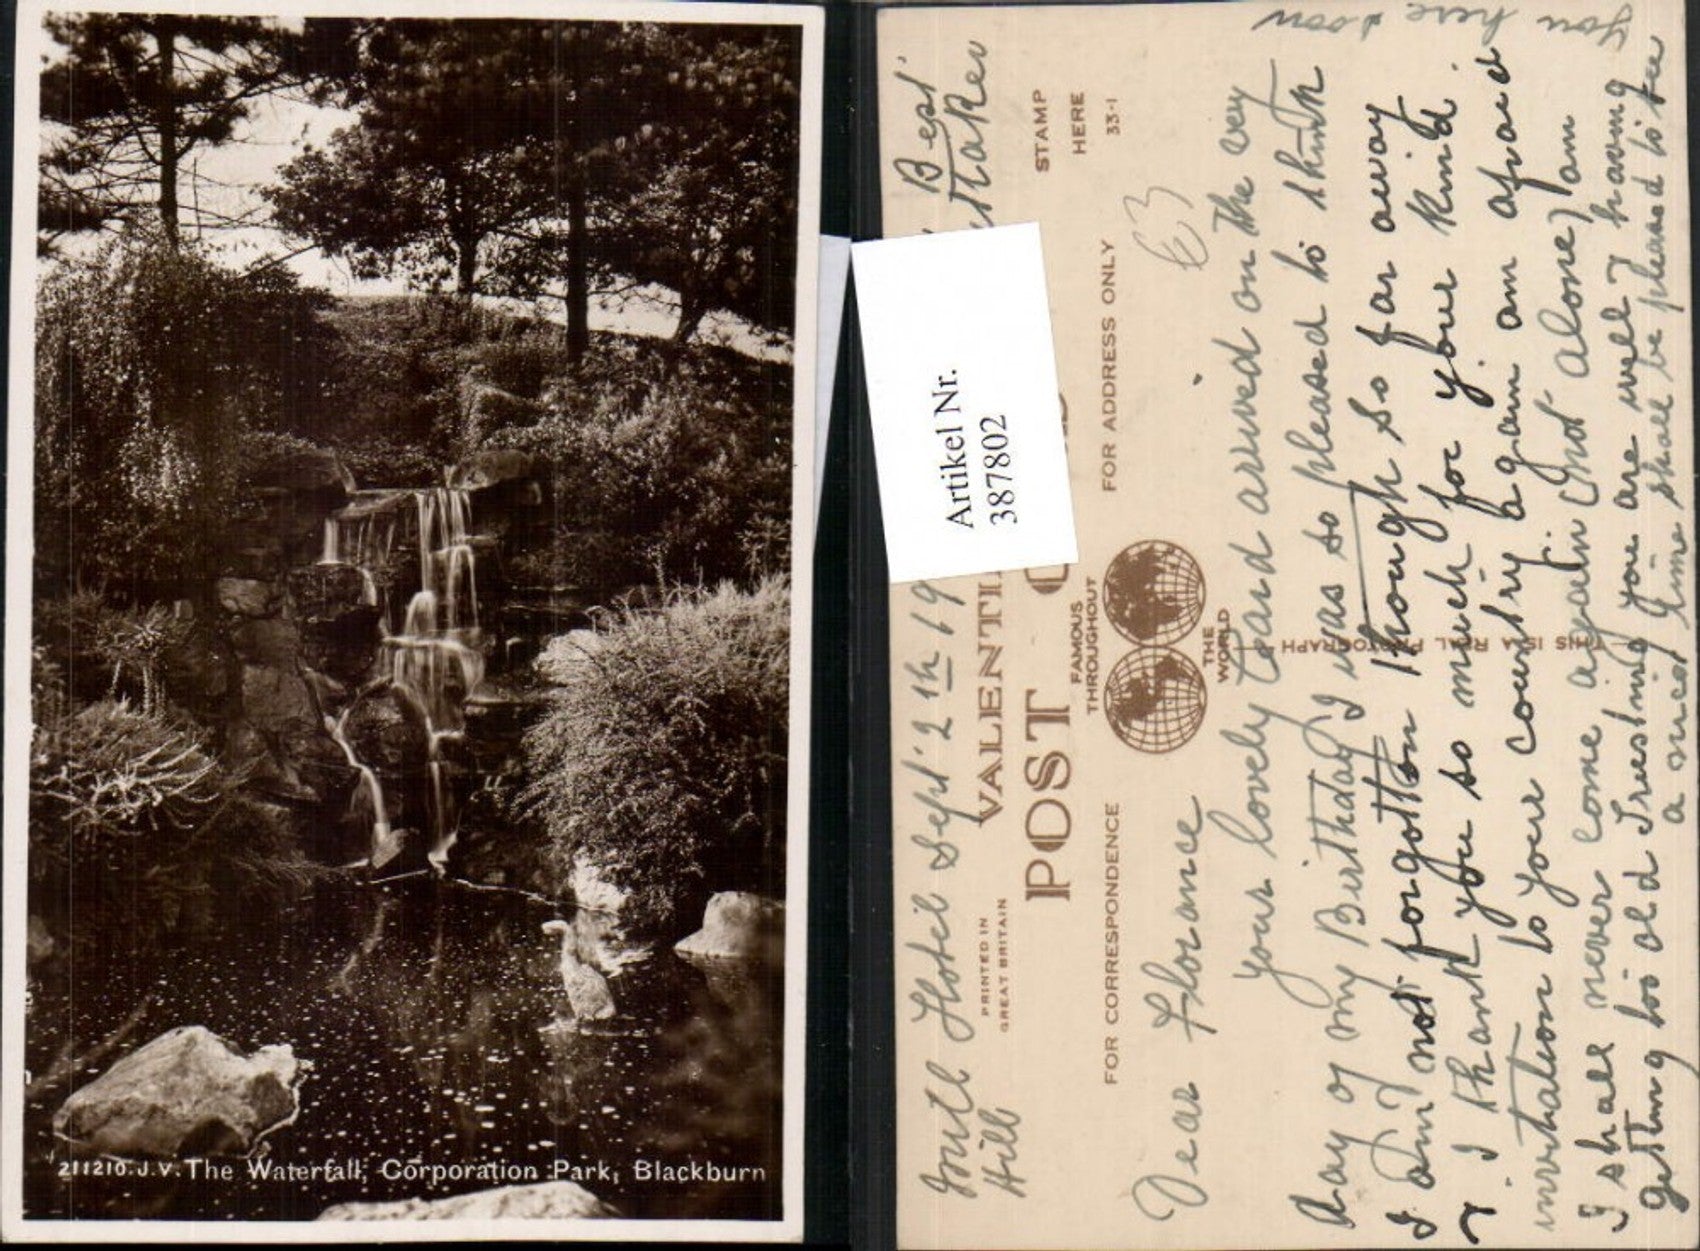 211210.J.V. The Waterfall, Corporation Park, Blackburn
Artikel Nr.
387802
Hotel Sept' 2th 19
Hill
Best
VALENTI
POST
PRINTED IN
GREAT BRITAIN
FAMOUS
THROUGHOUT
THE
WORLD
STAMP
HERE
33-1
FOR CORRESPONDENCE
FOR ADDRESS ONLY
THIS IS A REAL PHOTOGRAPH
Dear Florance
your lovely Card arrived on the very
day of my Birthday I was so pleased to think
I am not forgotton though so far away
I thank you so much for your kind
invitation to your country again am afraid
I shall never come again (not alone) I am
getting too old I resting you are well & having
a nice time shall be pleased to see
you here soon